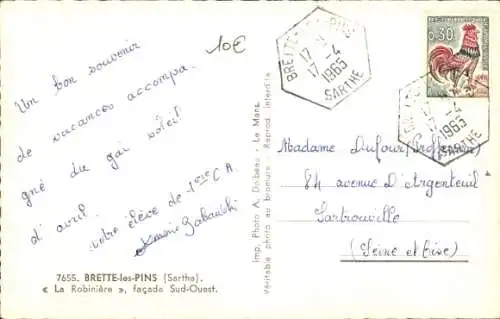 Un bon souvenir
de vacances accompa-
gné du gai soleil
d'avril.
votre élève de 1ère C.A.
10€
7655. BRETTE-les-PINS (Sarthe).
« La Robinière », façade Sud-Ouest.
Imp. Photo A. Dolbeau - Le Mans.
Véritable photo au bromure - Reprod. interdite
BRETTE-LES-PINS
17 -4
1965
SARTHE
0,30
17 -4
1965
SARTHE
Madame Dufour (Professeur)
84 avenue D'Argenteuil
Sartrouville
(Seine et Oise)